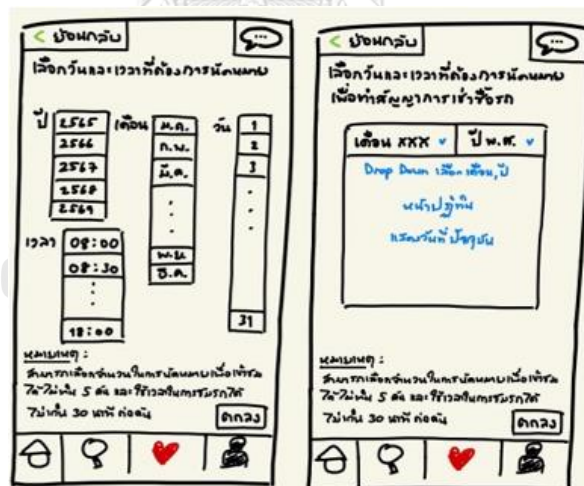 < ย้อนกลับ
เลือกวันและเวลาที่ต้องการนัดหมาย
ปี
2565
2566
2567
2568
2569
เดือน
ม.ค.
ก.พ.
มี.ค.
พ.ย.
ธ.ค.
วัน
1
2
3
31
เวลา
08:00
08:30
18:00
หมายเหตุ :
สามารถเลือกจำนวนในการนัดหมายเพื่อเข้าชม
ได้ไม่เกิน 5 คัน และใช้เวลาในการชมรถได้
ไม่เกิน 30 นาที ต่อคัน
ตกลง
< ย้อนกลับ
เลือกวันและเวลาที่ต้องการนัดหมาย
เพื่อทำสัญญาการเช่าซื้อรถ
เดือน XXX
ปี พ.ศ.
Drop Down เลือกเดือน,ปี
หน้าปฏิทิน
แสดงวันที่ ปัจจุบัน
หมายเหตุ :
สามารถเลือกจำนวนในการนัดหมายเพื่อเข้าชม
ได้ไม่เกิน 5 คัน และใช้เวลาในการชมรถได้
ไม่เกิน 30 นาที ต่อคัน
ตกลง